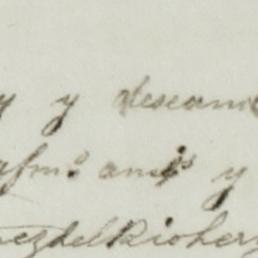 y y desean
afmº amigº y
ezdelRioherz